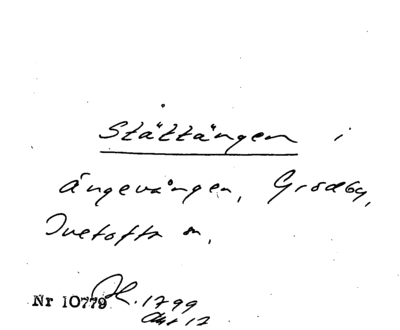 Stättängen i
Ängevången, Grödby,
Ivetofta sn,
Nr 10779 H. 1799
Akt 12